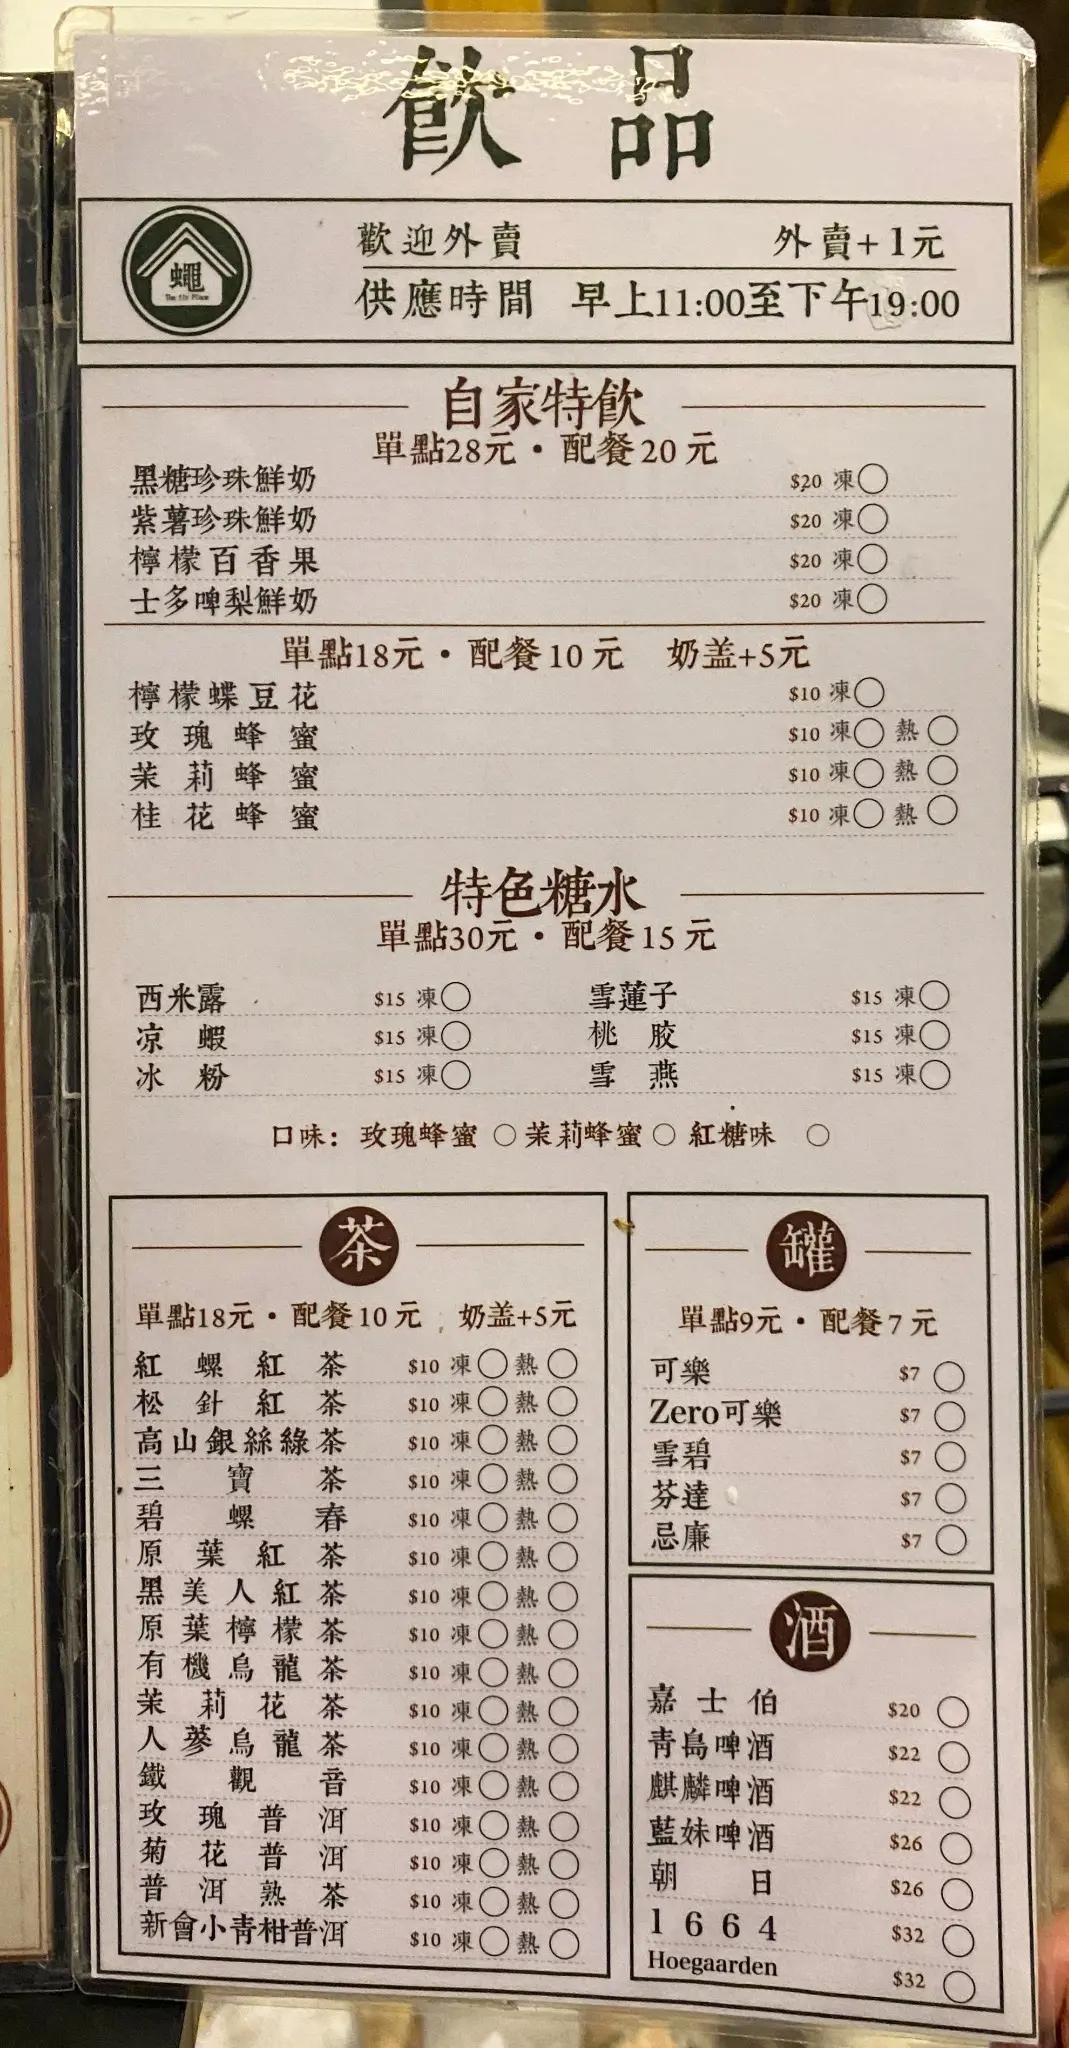 飲品
蠅
The Fly Place
歡迎外賣 外賣+1元
供應時間 早上11:00至下午19:00
自家特飲
單點28元・配餐20元
黑糖珍珠鮮奶 $20 凍○
紫薯珍珠鮮奶 $20 凍○
檸檬百香果 $20 凍○
士多啤梨鮮奶 $20 凍○
單點18元・配餐10元 奶盖+5元
檸檬蝶豆花 $10 凍○
玫瑰蜂蜜 $10 凍○ 熱○
茉莉蜂蜜 $10 凍○ 熱○
桂花蜂蜜 $10 凍○ 熱○
特色糖水
單點30元・配餐15元
西米露 $15 凍○ 雪蓮子 $15 凍○
凉蝦 $15 凍○ 桃胶 $15 凍○
冰粉 $15 凍○ 雪燕 $15 凍○
口味：玫瑰蜂蜜○茉莉蜂蜜○紅糖味○
茶
單點18元・配餐10元 奶盖+5元
紅螺紅茶 $10 凍○熱○
松針紅茶 $10 凍○熱○
高山銀絲綠茶 $10 凍○熱○
三寶茶 $10 凍○熱○
碧螺春 $10 凍○熱○
原葉紅茶 $10 凍○熱○
黑美人紅茶 $10 凍○熱○
原葉檸檬茶 $10 凍○熱○
有機烏龍茶 $10 凍○熱○
茉莉花茶 $10 凍○熱○
人蔘烏龍茶 $10 凍○熱○
鐵觀音 $10 凍○熱○
玫瑰普洱 $10 凍○熱○
菊花普洱 $10 凍○熱○
普洱熟茶 $10 凍○熱○
新會小靑柑普洱 $10 凍○熱○
罐
單點9元・配餐7元
可樂 $7 ○
Zero可樂 $7 ○
雪碧 $7 ○
芬達 $7 ○
忌廉 $7 ○
酒
嘉士伯 $20 ○
靑島啤酒 $22 ○
麒麟啤酒 $22 ○
藍妹啤酒 $26 ○
朝日 $26 ○
1664 $32 ○
Hoegaarden $32 ○